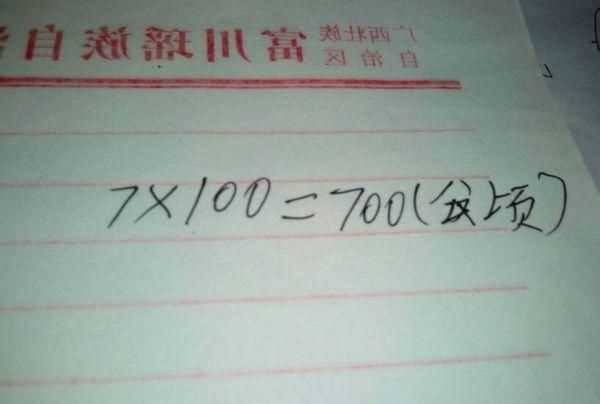 广西壮族
自治区
富川瑶族自治
7×100=700(公顷)